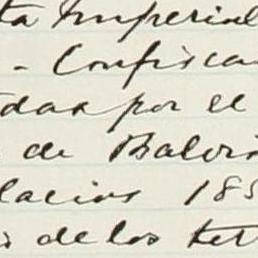 ta Imperial
- Confisca
das por el
de Balvis
lacios 185
de los ter